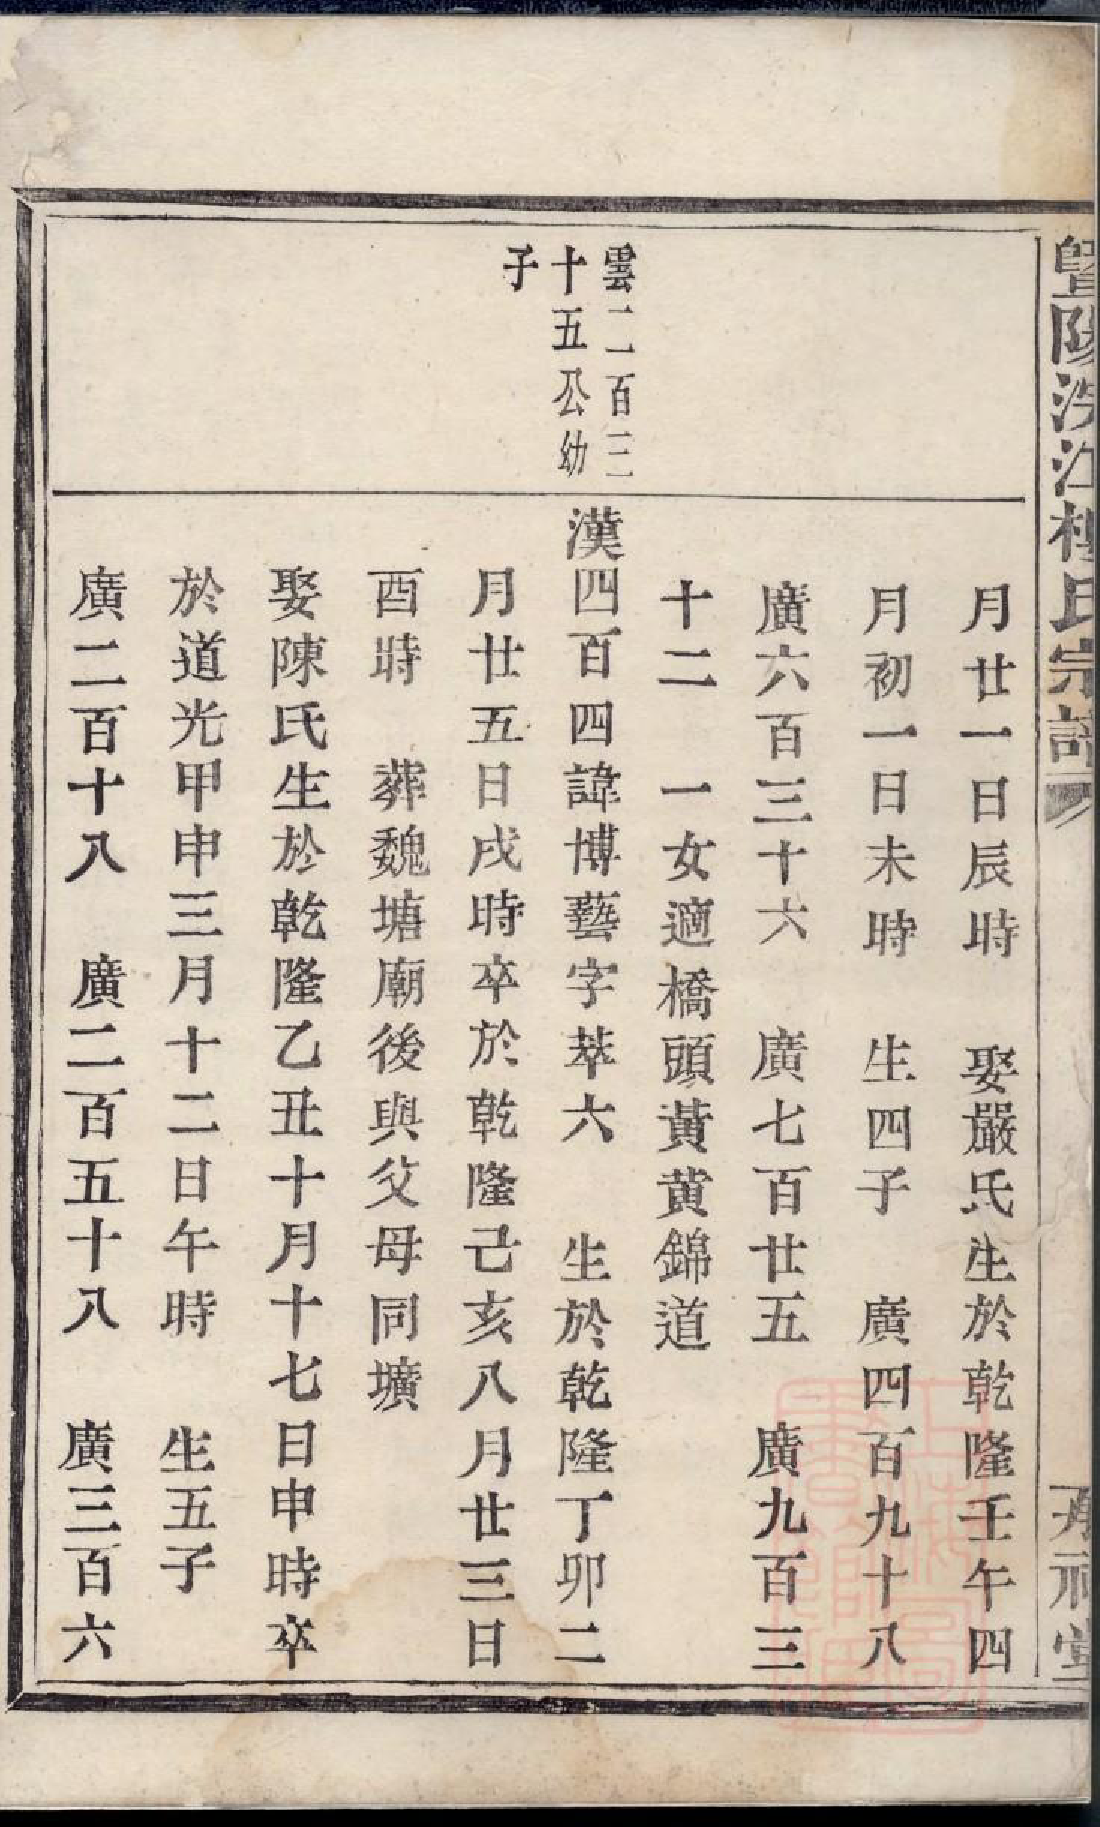 暨陽次江楼氏宗譜
月廿一日辰時 娶嚴氏生於乾隆壬午四
月初一日未時 生四子 廣四百九十八
廣六百三十六 廣七百廿五 廣九百三
十二 一女適橋頭黃黃錦道
雲二百三
十五公幼
子
漢四百四諱博藝字萃六 生於乾隆丁卯二
月廿五日戌時卒於乾隆己亥八月廿三日
酉時 葬魏塘廟後與父母同壙
娶陳氏生於乾隆乙丑十月十七日申時卒
於道光甲申三月十二日午時 生五子
廣二百十八 廣二百五十八 廣三百六